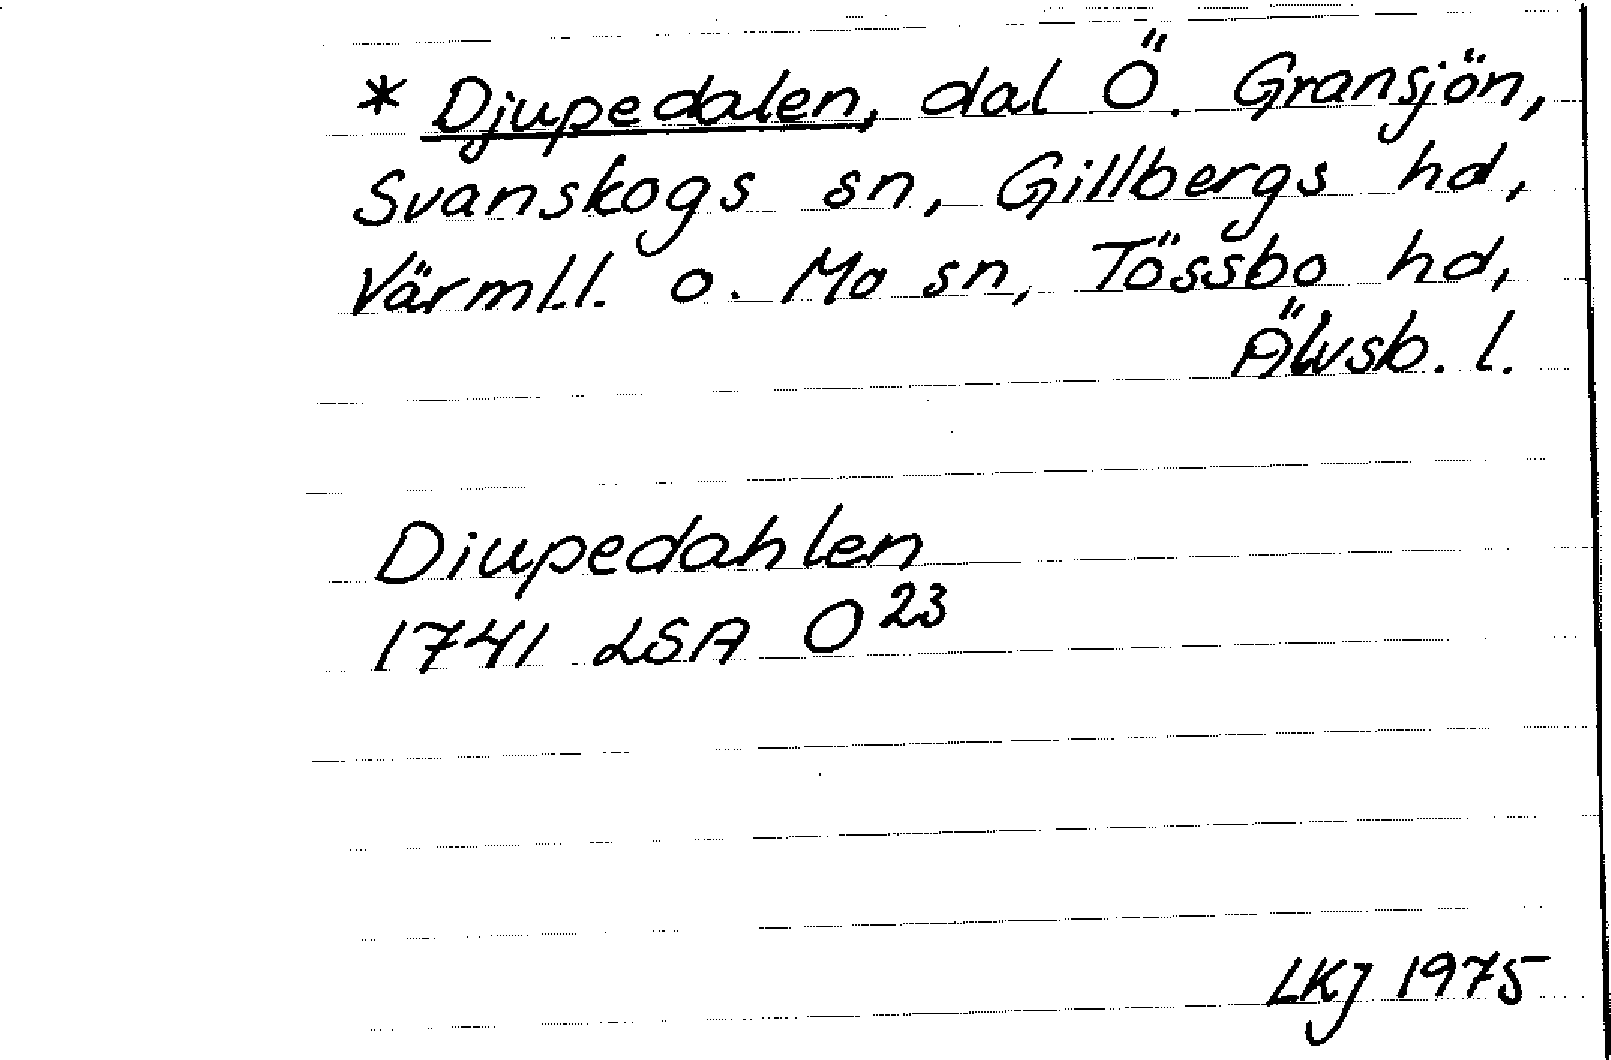 * Djupedalen, dal Ö. Gransjön,
Svanskogs sn, Gillbergs hd,
Värml.l. o. Mo sn, Tössbo hd,
Älvsb. l.
Diupedahlen
1741 LSA O 23
LKJ 1975